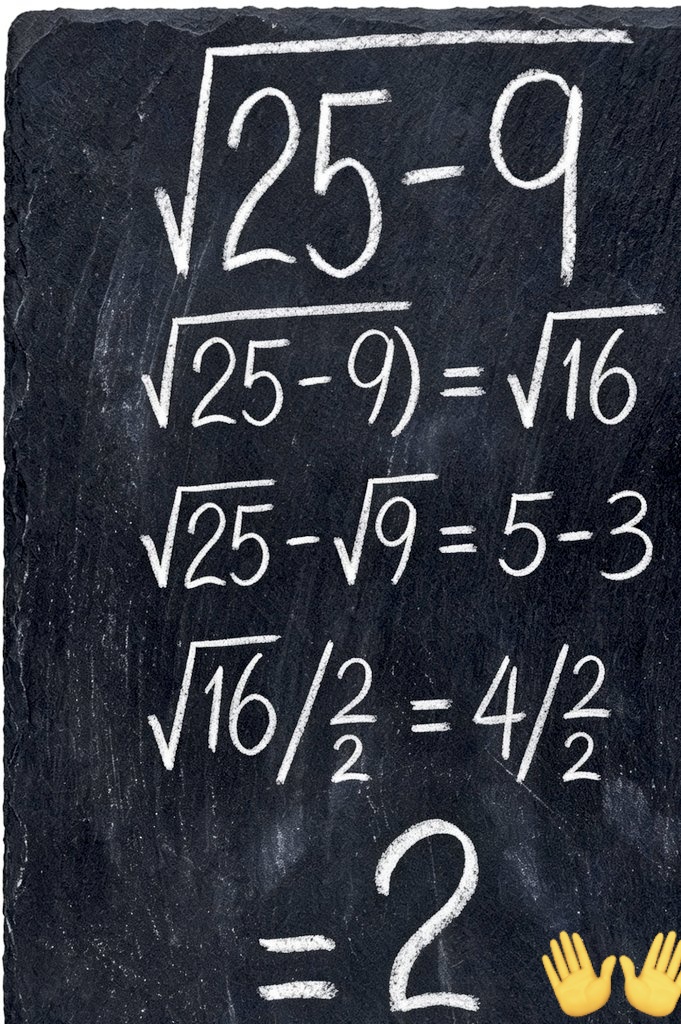 √25-9
√25-9) = √16
√25 - √9 = 5-3
√16/2/2 = 4/2/2
= 2